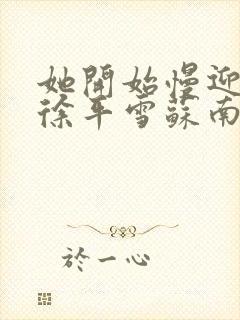 她開始慢迎
徐平雪蘇南
於一心